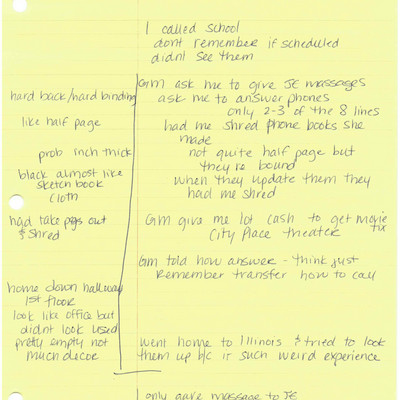 I called school
dont remember if scheduled
didnt see them
GM ask me to give JE massages
hard back/hard binding
ask me to answer phones
only 2-3 of the 8 lines
like half page
had me shred phone books she
made
prob inch thick
not quite half page but
they're bound
black almost like
sketch book
cloth
when they update them they
had me shred
had take pgs out
& shred
GM give me lot cash to get movie
tix
City Place theater
GM told how answer - think just
remember transfer how to call
home down hallway
1st floor
look like office but
didnt look used
pretty empty not
much decor
went home to Illinois & tried to look
them up b/c it such weird experience
I only gave massage to JE